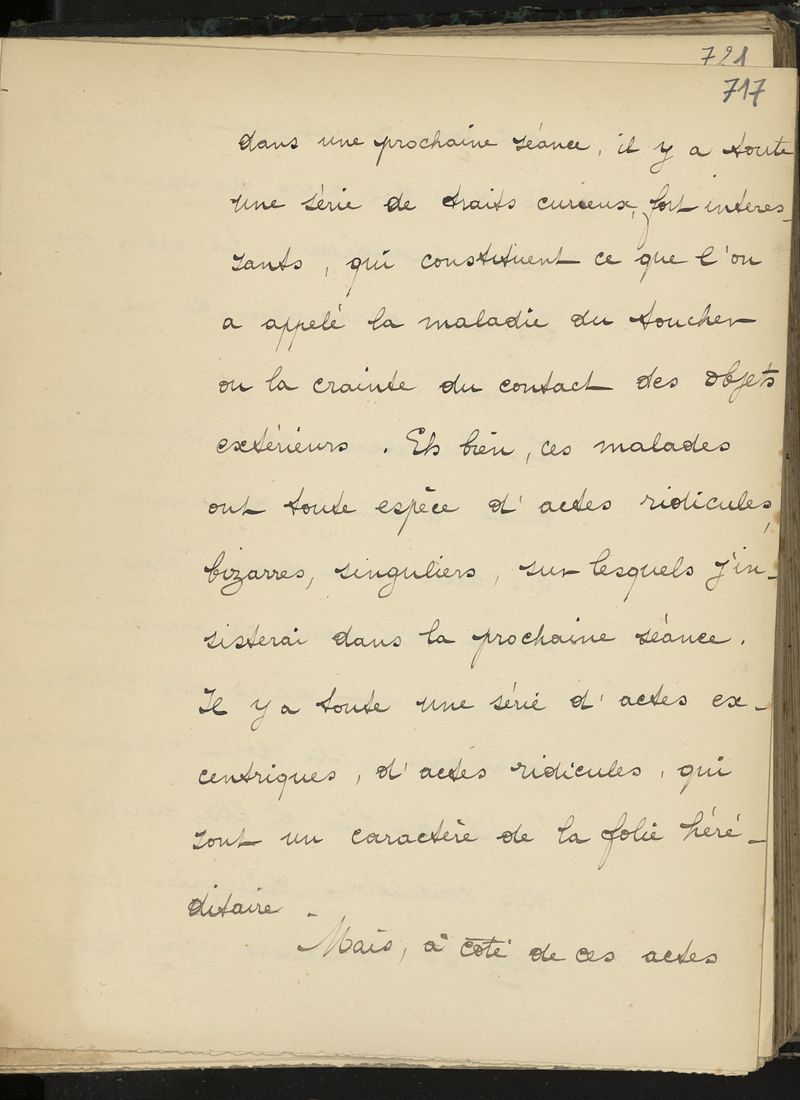 721
717
dans une prochaine séance, il y a toute
une série de traits curieux, fort intéres-
sants, qui constituent ce que l'on
a appelé la maladie du toucher
ou la crainte du contact des objets
extérieurs. Eh bien, ces malades
ont toute espèce d'actes ridicules,
bizarres, singuliers, sur lesquels j'in-
sisterai dans la prochaine séance.
Il y a toute une série d'actes ex-
centriques, d'actes ridicules, qui
sont un caractère de la folie héré-
ditaire.
Mais, à côté de ces actes